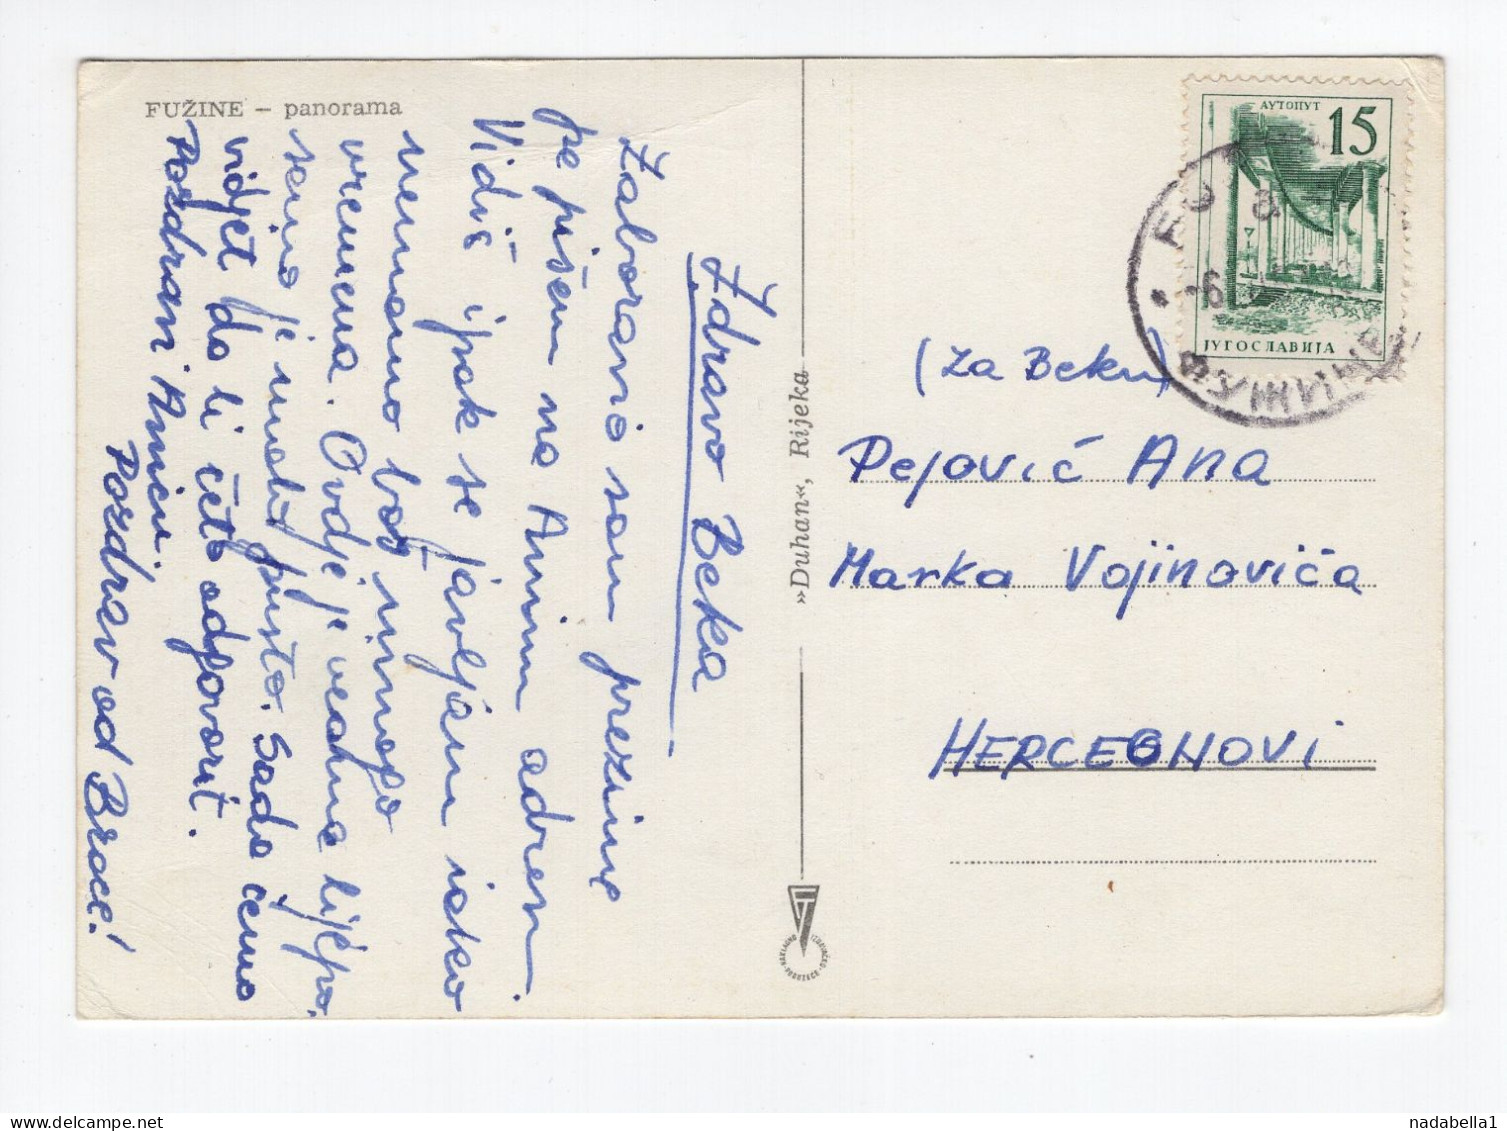 FUŽINE – panorama
Zdravo Beka
Zaboravio sam prezime
pe pišem na Aninu adresu.
Vidiš ipak se javljam iako
nemamo baš mnogo
vremena. Ovdje je veoma lijepo,
samo je malo pusto. Sada ćemo
vidjet da li ćete odgovorit.
Pozdravi Anicu.
Pozdrav od Brace!
»Duhan«, Rijeka
АУТОПУТ
15
ЈУГОСЛАВИЈА
(Za Beku)
Pejović Ana
Marka Vojinovića
HERCEGNOVI
nadabella1